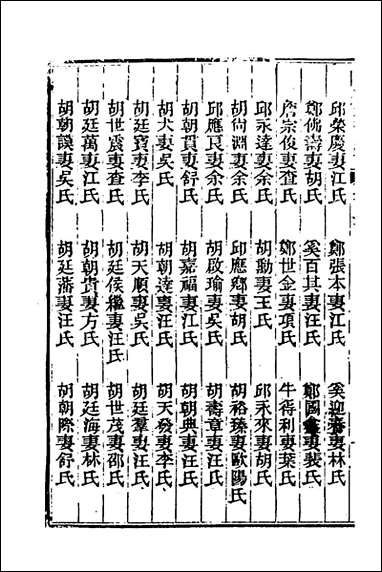 邱榮慶妻江氏 鄭張本妻江氏 奚迎妻林氏
鄭佛壽妻胡氏 奚百其妻汪氏 鄭國妻裴氏
詹宗俊妻查氏 鄭世金妻項氏 牛得利妻葉氏
邱永達妻余氏 胡勛妻王氏 邱永來妻胡氏
胡尙淵妻余氏 邱應鄉妻胡氏 胡裕臻妻歐陽氏
邱應良妻余氏 胡啟瑜妻吳氏 胡壽章妻汪氏
胡朝貫妻舒氏 胡嘉福妻江氏 胡朝典妻汪氏
胡大妻吳氏 胡朝逵妻汪氏 胡天發妻李氏
胡廷寶妻李氏 胡天順妻吳氏 胡廷羣妻汪氏
胡世震妻查氏 胡廷侯繼妻汪氏 胡世茂妻邵氏
胡廷萬妻江氏 胡朝貴妻方氏 胡廷海妻林氏
胡朝謨妻吳氏 胡廷藩妻汪氏 胡朝際妻舒氏